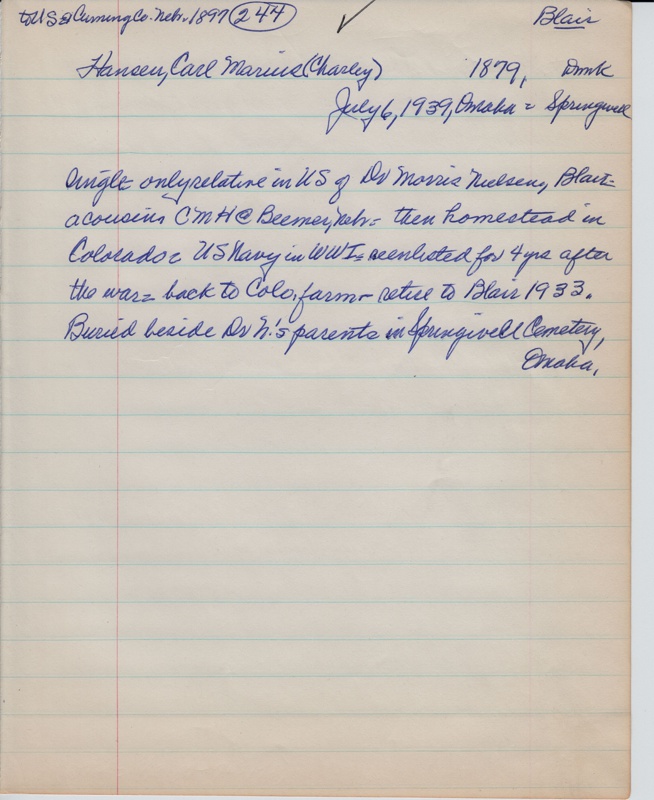 to US & Cuming Co. Nebr. 1897 244 Blair
Hansen, Carl Marius (Charley) 1879, Dmk
July 6, 1939, Omaha = Springwell
single only relative in US of Dr Morris Nielsen, Blair=
a cousin. CMH @ Beemer, Nebr= then homestead in
Colorado= US Navy in WWI= reenlisted for 4 yrs after
the war= back to Colo. farm- retire to Blair 1933.
Buried beside Dr N.'s parents in Springwell Cemetery,
Omaha.